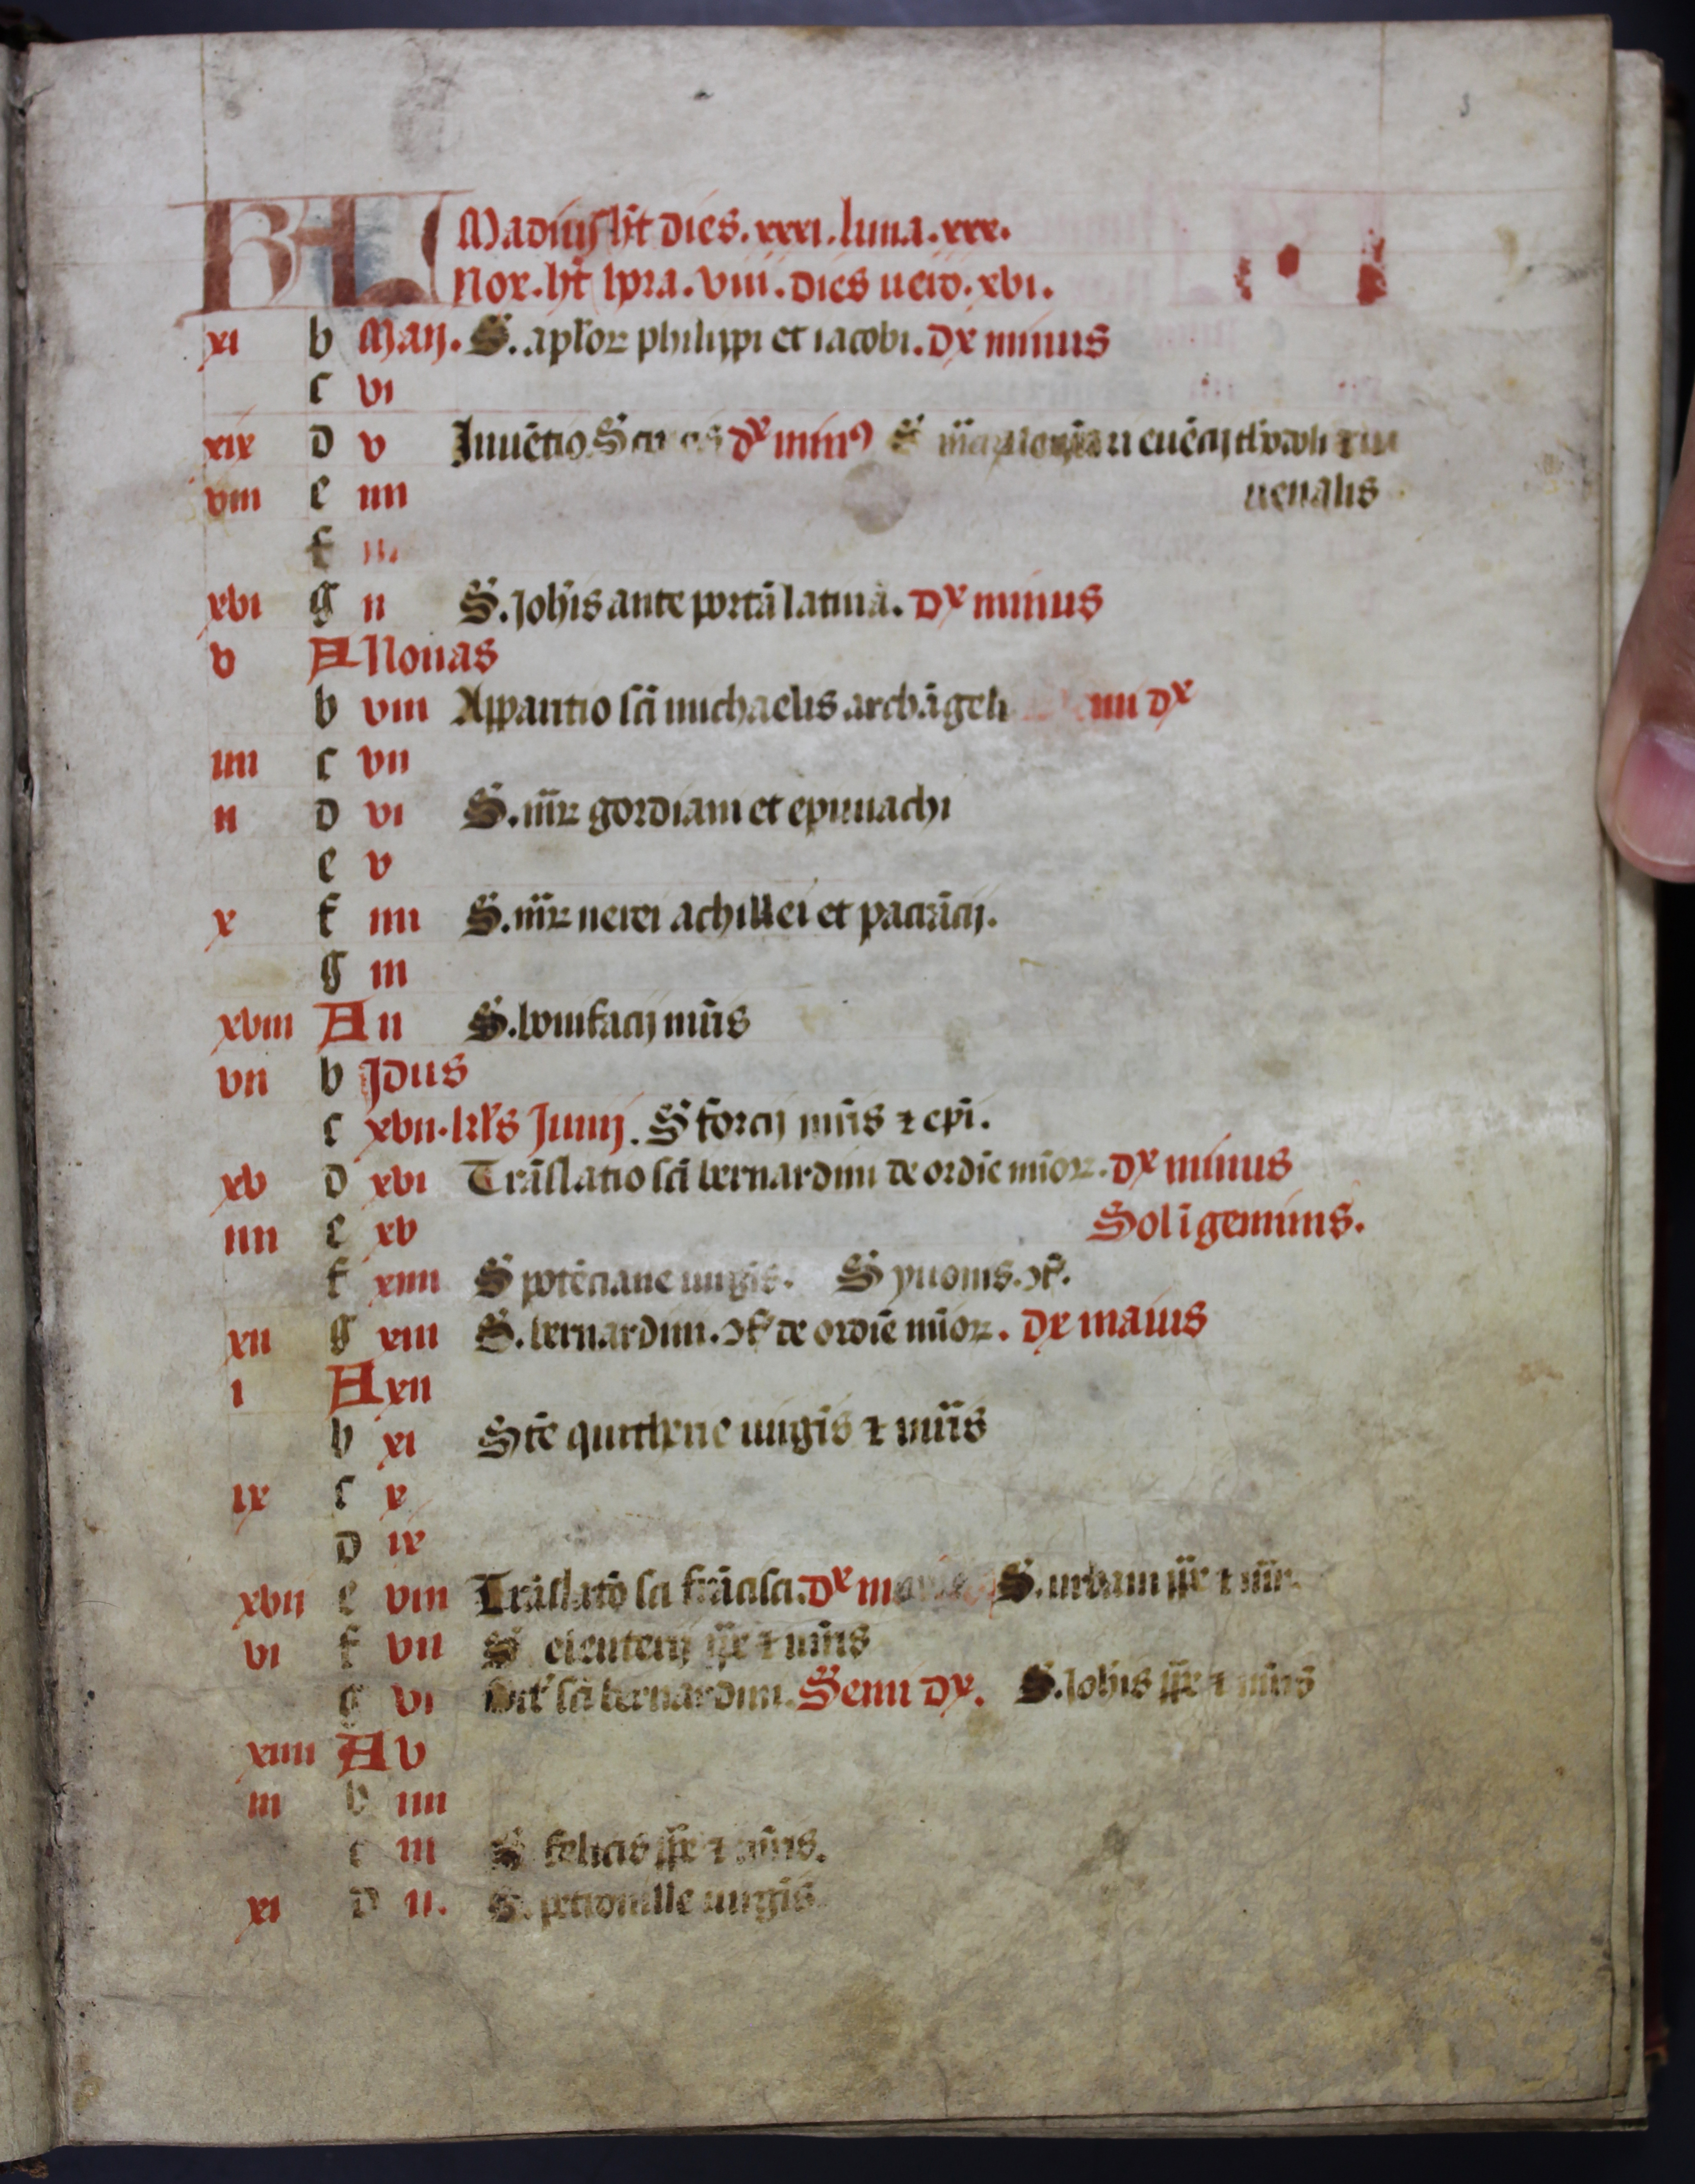 3
KL Madius h̄t dies. xxxi. luna. xxx.
Nox. h̄t hora. viii. dies uero. xvi.
xi b Maij. S. apl̄oꝝ philippi et iacobi. Dx minus
c vi
xix d v Inuētio S dx min⁹ S euētij theodoli et iu
viii e iiii uenalis
f iii
xvi g ii S. Joh̄is ante portā latinā. Dx minus
v A Nonas
b viii Apparitio sc̄i michaelis archāgeli mi dx
iiii c vii
ii d vi S. m̄rꝝ gordiani et epimachi
e v
x f iiii S. m̄rꝝ nerei achillei et pācracij.
g iii
xviii A ii S. bonifacij m̄ris
vii b Jdus
c xvii. kl̄s Junij. S forcij m̄ris ⁊ ep̄i.
xv d xvi Trāslatio sc̄i bernardini de ordīe mīoꝝ. dx minus
iiii e xv Sol ī geminis.
f xiiii S potētiane uirgis. S yuonis. ↄf̄.
xii g xiii S. bernardini. ↄf̄ de ordīe mīoꝝ. dx maius
i A xii
b xi Stē quitherie uirgīs ⁊ m̄ris
ix c x
d ix
xvii e viii Trāslatō sc̄i frācisci. Dx S. urbani pp̄e ⁊ m̄r.
vi f vii S eleuterij pp̄e ⁊ m̄ris
g vi Oct̄ sc̄i bernardini. Semi dx. S. Joh̄is pp̄e ⁊ m̄ris
xiiii A v
iii b iiii
c iii S felicis pp̄e ⁊ m̄ris.
xi d ii. S. petronille uirgīs